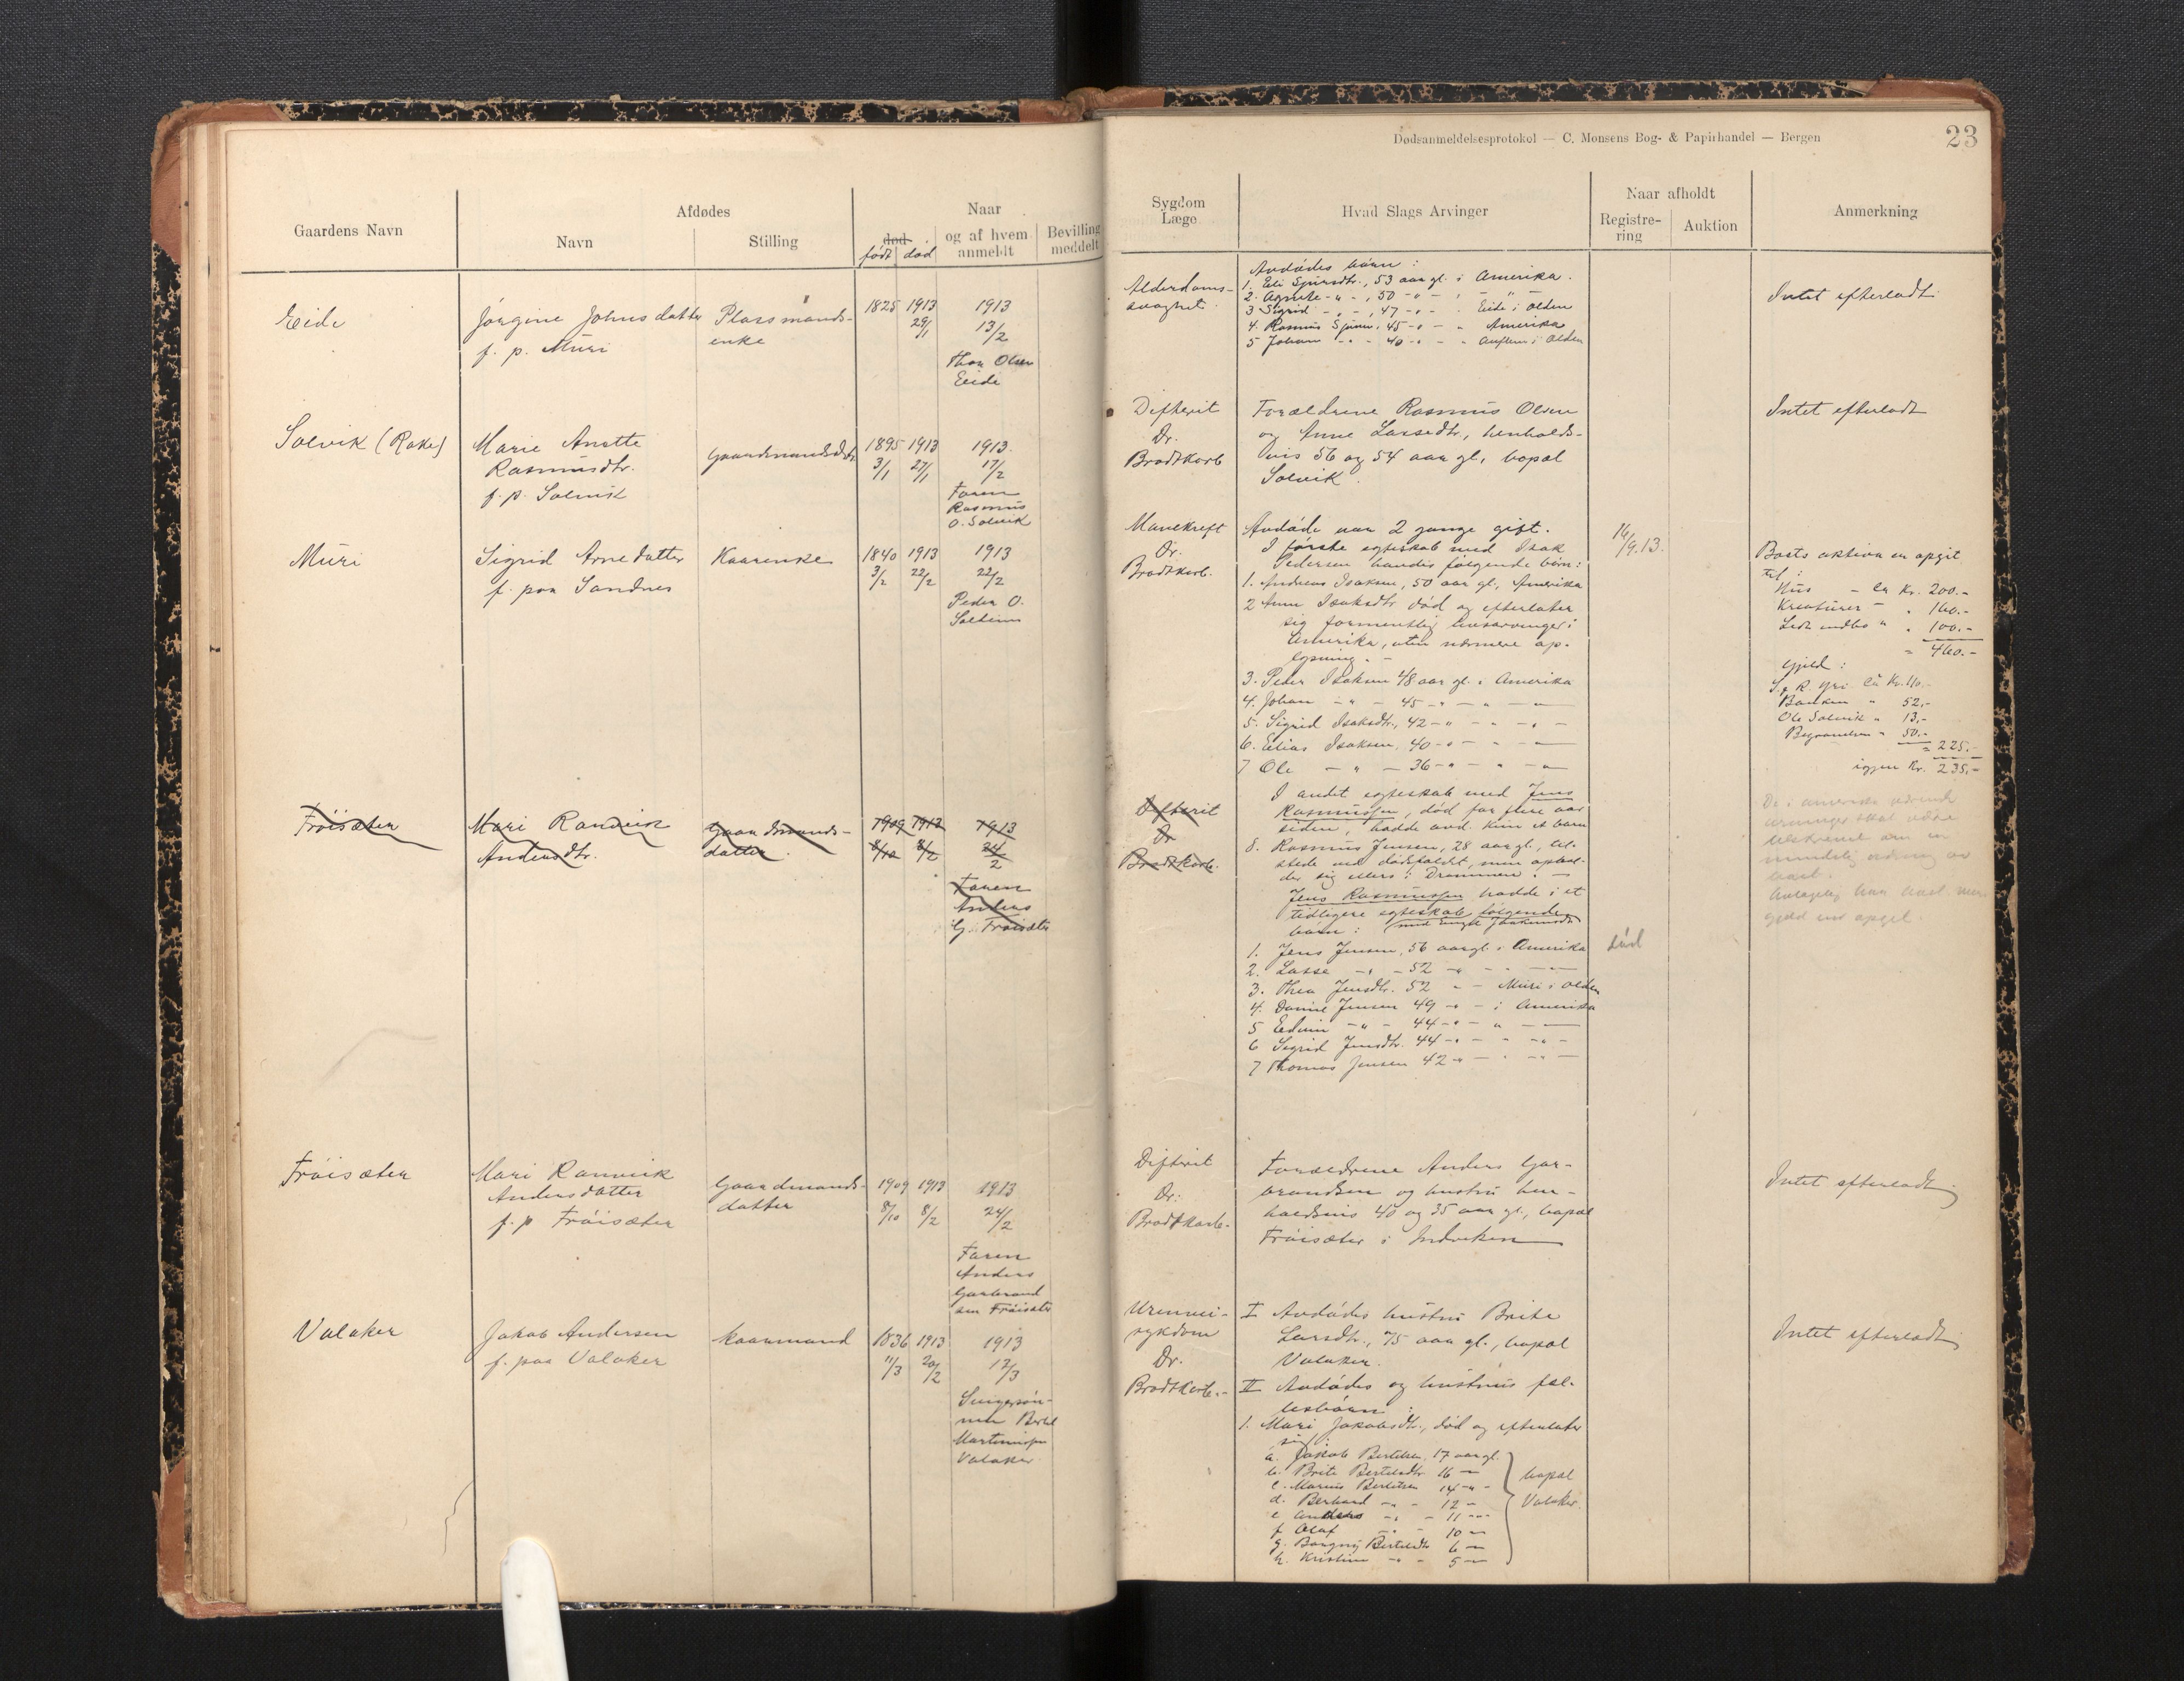 Dødsanmeldelsesprotokol — C. Monsens Bog- & Papirhandel — Bergen
23
Gaardens Navn
Afdødes
Navn
Stilling
Naar
død
født død
og af hvem
anmeldt
Bevilling
meddelt
Sygdom
Læge
Hvad Slags Arvinger
Naar afholdt
Registre-
ring
Auktion
Anmerkning
Eide
Jørgine Johnsdatter
f. p. Muri
Plassmands-
enke
1825 1913
29/1
1913
13/2
Olsen
Eide
Alderdoms-
svaghet.
Avdødes børn:
1. Eli Sjursdtr., 53 aar gl. i Amerika.
2. Agnete - " - , 50 - " -
3 Sigrid - " - , 47 - " - Eide i Olden
4. Rasmus Sjursen, 45 - " - " Amerika
5 Johan - " - 40 - " - " i Olden
Intet efterladt
Solvik (Rake)
Marie Anette
Rasmusdtr.
f. p. Solvik
Gaardmandsdtr.
1895 1913
3/1 27/1
1913.
17/2
Faren
Rasmus
O. Solvik
Difterit
Dr.
Brodtkorb
Forældrene Rasmus Olsen
og Anne Lassedtr., henholds-
vis 56 og 54 aar gl., bopæl
Solvik.
Intet efterladt
Muri
Sigrid Arnedatter
f. paa Sandnes
Kaarenke
1840 1913
3/2 22/2
1913
22/2
Peder O.
Mavekreft
Dr.
Brodtkorb.
Avdøde var 2 gange gift.
I første egteskab med Isak
Pedersen havdes følgende børn:
1. Andreas Isaksen, 50 aar gl., Amerika
2 Anna Isaksdtr. død og efterlater
sig formentlig livsarvinger i
Amerika, uten nærmere op-
lysning. -
3. Peder Isaksen 48 aar gl. i Amerika
4. Johan - " - 45 - " - " -
5. Sigrid Isaksdtr., 42 - " - " - " -
6. Elias Isaksen, 40 - " - " -
7 Ole - " - 36 - " - " - "
I andet egteskab med Jens
Rasmussen, død for flere aar
siden, hadde avd. kun et barn
8. Rasmus Jensen, 28 aar gl., til-
stede ved dødsfaldet, men ophol-
der sig ellers i Drammen. -
Jens Rasmussen hadde i et
tidligere egteskab følgende
børn: (med
1. Jens Jensen, 56 aar gl. i Amerika
2. Lasse - " - 52 - " -
3. Thea Jensdtr. 52 " - Muri i Olden
4. Daniel Jensen 49 - " - i Amerika
5 Edvin - " - 44 - " - " -
6 Sigrid Jensdtr. 44 - " - " - " -
7 Thomas Jensen 42 - " - " - " -
14/9.13.
død
Boets aktiva er opgit
til:
Hus - ca Kr. 200.-
Kreaturer - " 160.-
Løst indbo " " 100.-
" 460.-
Gjæld:
S. & R. Yri ca Kr. 110.-
Banken " 52,-
Ole Solvik " 13,-
Begravelsen " 50.-
" 225.-
igjen Kr. 235.-
De i Amerika værende
arvinger skal være
om en
mindelig ordning av
boet.
Antagelig har boet mere
gjæld end opgit.
Frøisæter
Mari Ranveik
Andersdtr.
Gaardmands-
datter.
1909 1913
8/10 8/2
1913
24/2
Faren
Anders
G. Frøisæter
Difterit
Dr
Brodtkorb.
Frøisæter
Mari Ranveik
Andersdatter
f. p Frøisæter
Gaardmands-
datter
1909 1913
8/10 8/2
1913
24/2
Faren
Anders
Garbrand
sen Frøisæter
Difterit
Dr.
Brodtkorb.
Forældrene Anders Gar-
brandsen og hustru hen-
holdsvis 40 og 35 aar gl., bopæl
Frøisæter i Indviken
Intet efterladt.
Valaker
Jakob Andersen
f. paa Valaker
Kaarmand
1836 1913
11/3 20/2
1913
17/3
Svigersøn-
nen Bertel
Martinussen
Valaker.
sykdom
Dr.
Brodtkorb.-
I Avdødes hustru Brite
Larsdtr., 75 aar gl., bopæl
Valaker.
II Avdødes og hustrus fæl-
lesbørn:
1. Mari Jakobsdtr., død og efterlater
sig:
a. Jakob Bertelsen, 17 aar gl.
b. Brite Bertelsdtr. 16 -
c. Marius Bertelsen 14 - " -
d. Berhard - " - 12 -
e Anders - " - 11 - " -
f Olaf - " - 10 -
g. Borgny Bertelsdtr 6 -
h. Kristine - " - 5 -
bopæl
Valaker.
Intet efterladt